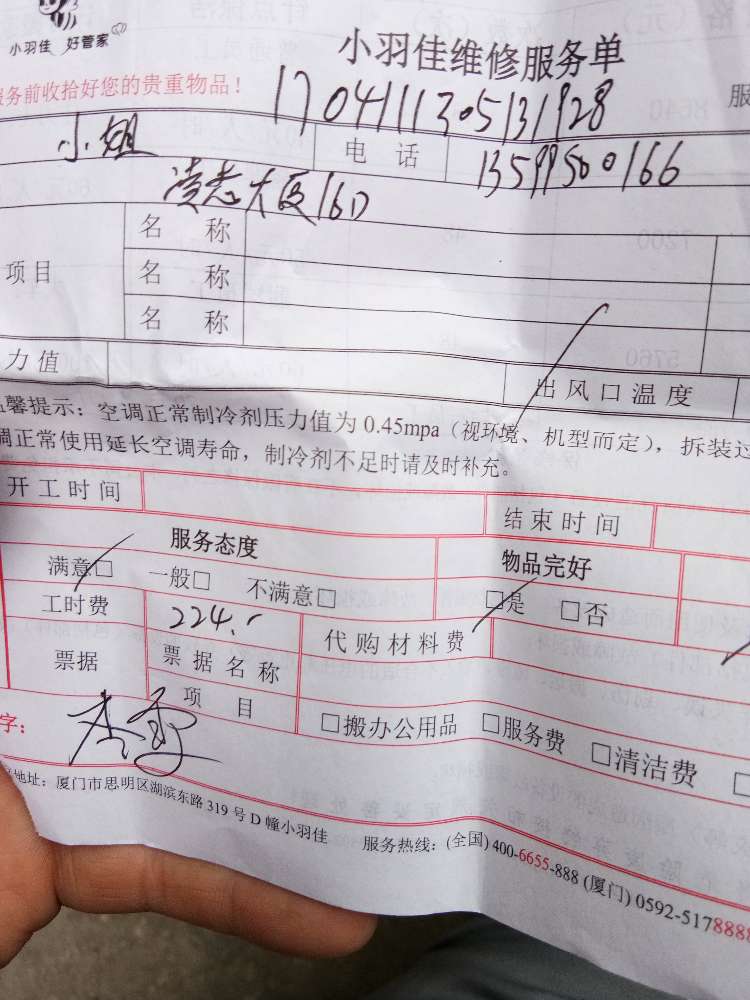 小羽佳 好管家
小羽佳维修服务单
服务前收拾好您的贵重物品！
服
1704111305131928
小姐 电话 13599500166
凌志大厦16D
项目 名称
名称
名称
力值 出风口温度
温馨提示：空调正常制冷剂压力值为 0.45mpa（视环境、机型而定），拆装过
调正常使用延长空调寿命，制冷剂不足时请及时补充。
开工时间 结束时间
服务态度 物品完好
满意□ 一般□ 不满意□ □是 □否
工时费 224. 代购材料费
票据 票据名称
项目 □搬办公用品 □服务费 □清洁费
字：
地址：厦门市思明区湖滨东路 319 号 D 幢小羽佳 服务热线：(全国) 400-6655-888 (厦门) 0592-5178888